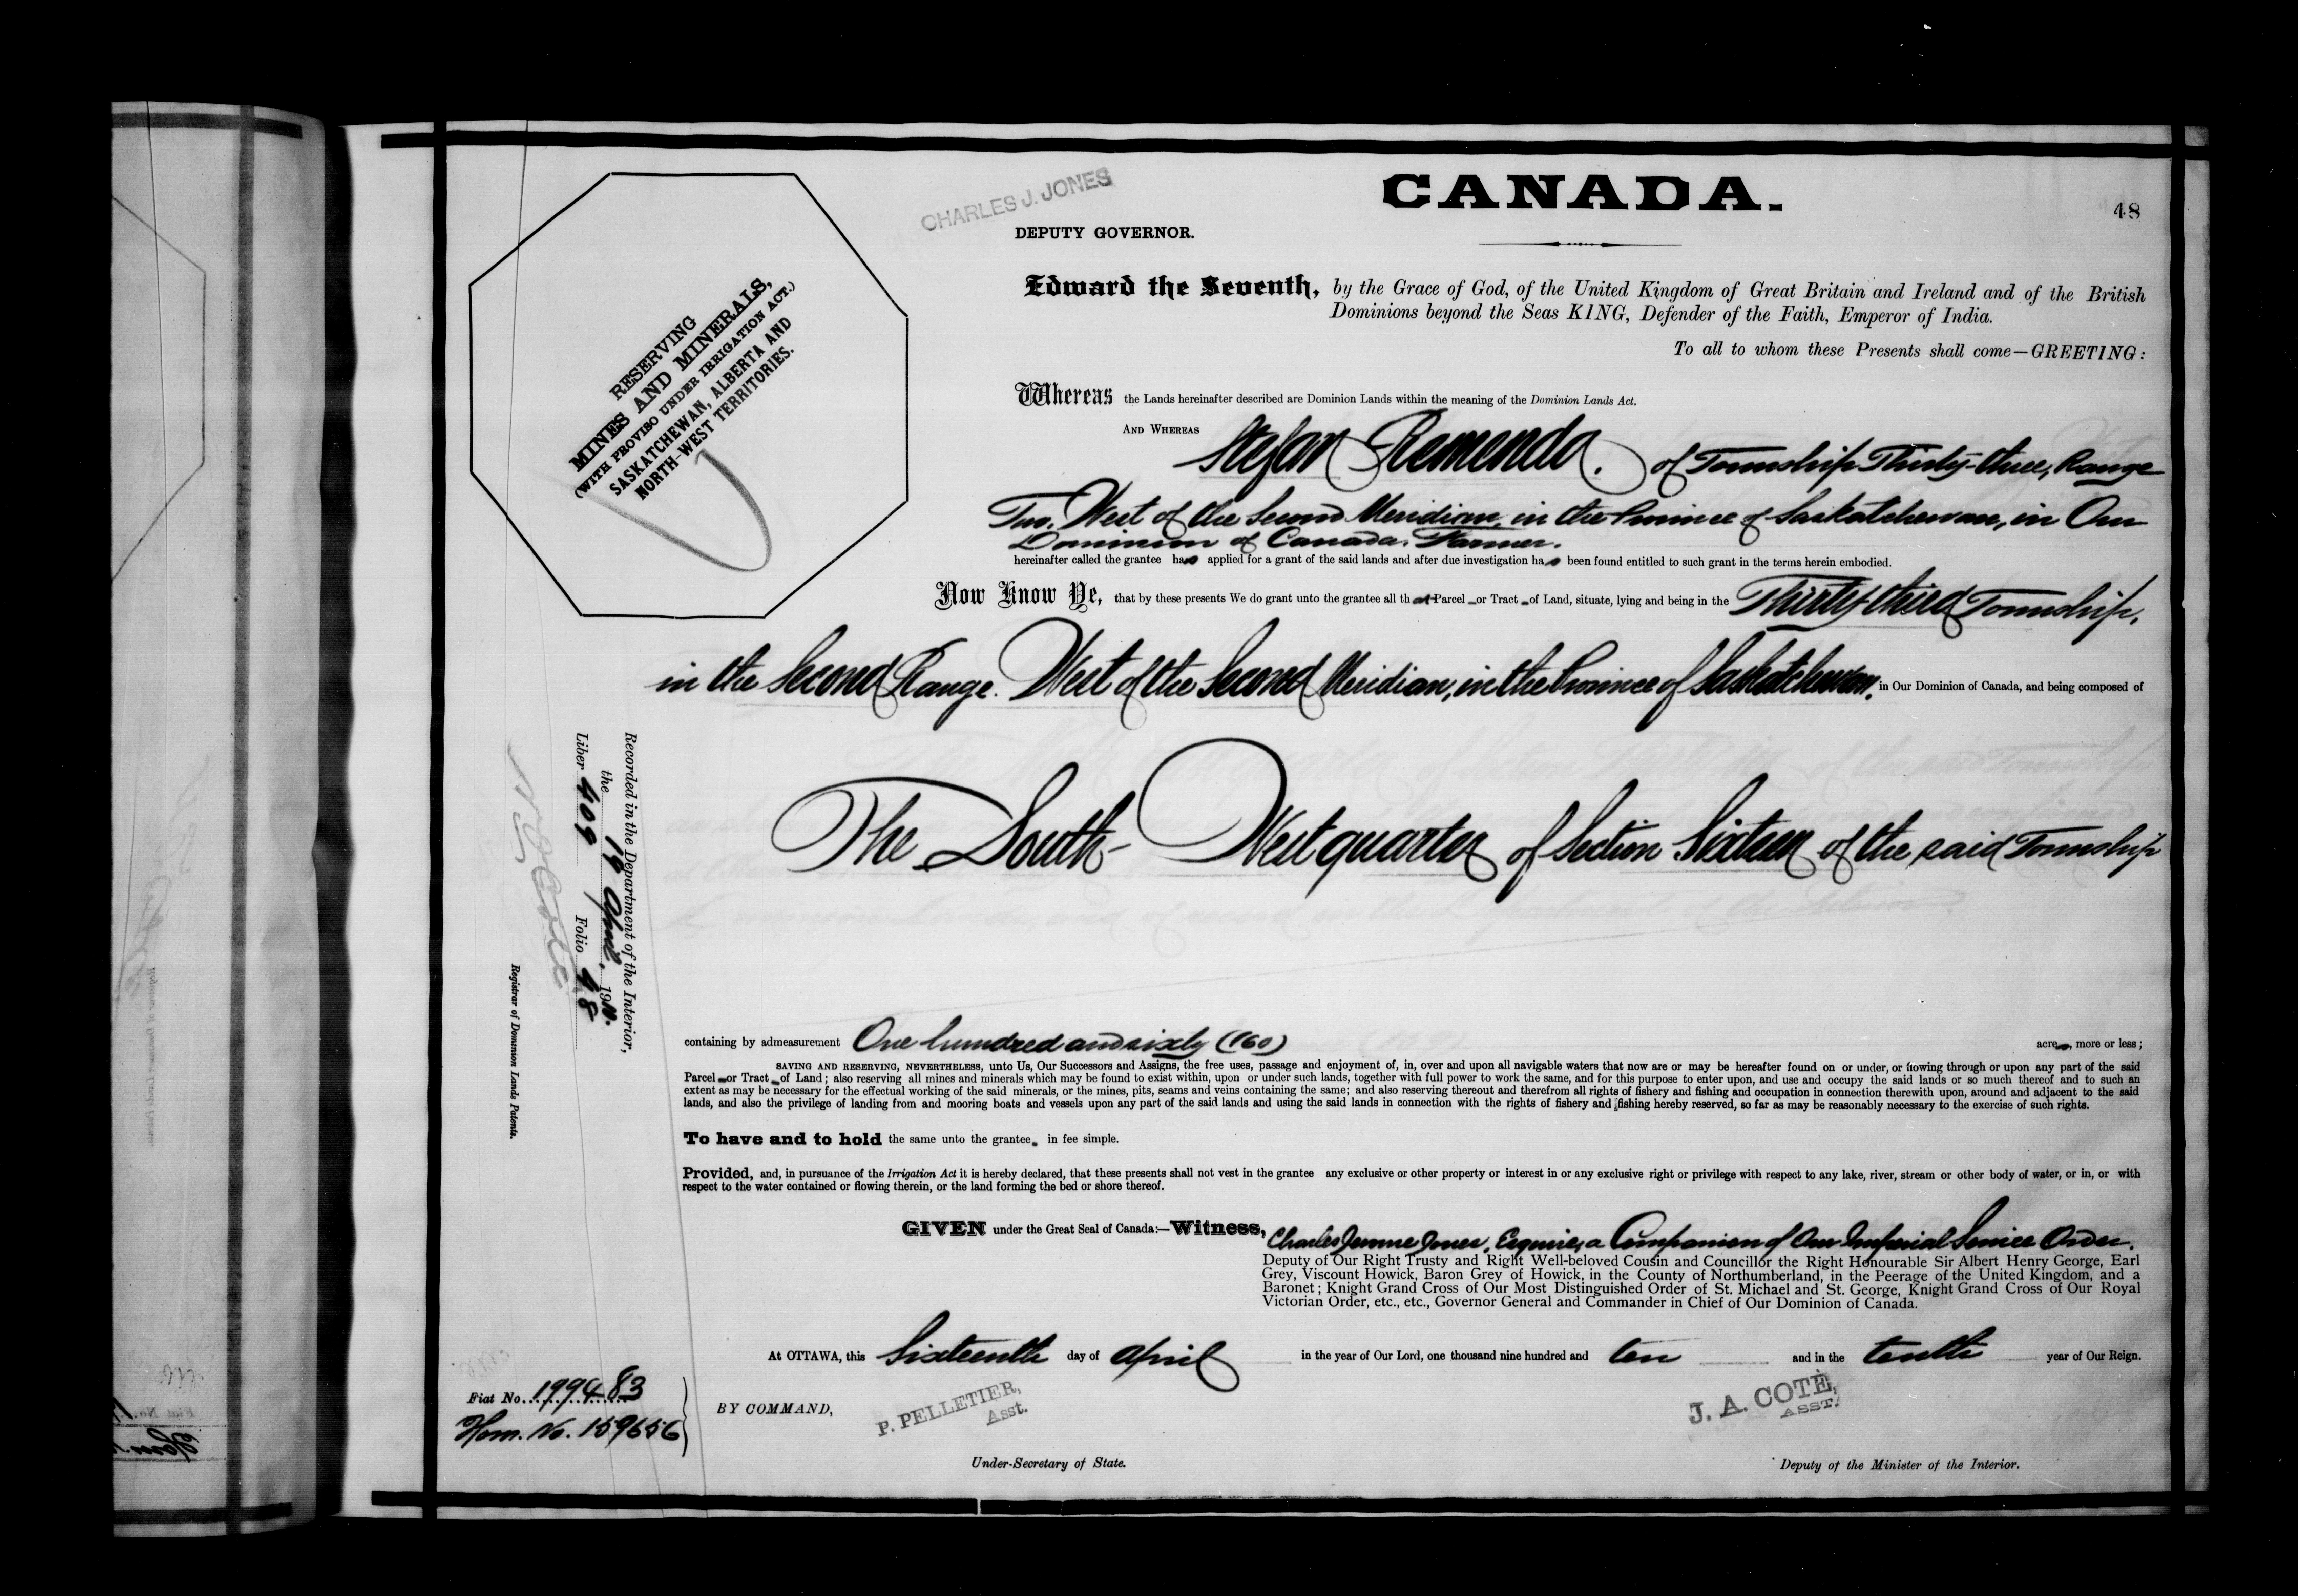 CHARLES J. JONES
CANADA.
48
DEPUTY GOVERNOR.
Edward the Seventh, by the Grace of God, of the United Kingdom of Great Britain and Ireland and of the British
Dominions beyond the Seas KING, Defender of the Faith, Emperor of India.
To all to whom these Presents shall come—GREETING:
RESERVING
MINES AND MINERALS,
(WITH PROVISO UNDER IRRIGATION ACT.)
SASKATCHEWAN, ALBERTA AND
NORTH-WEST TERRITORIES.
Whereas the Lands hereinafter described are Dominion Lands within the meaning of the Dominion Lands Act.
AND WHEREAS Stefan Remenda. of Township Thirty-three, Range
Two, West of the Second Meridian, in the Province of Saskatchewan, in Our
Dominion of Canada, Farmer.
hereinafter called the grantee has applied for a grant of the said lands and after due investigation has been found entitled to such grant in the terms herein embodied.
Now Know Ye, that by these presents We do grant unto the grantee all that Parcel or Tract of Land, situate, lying and being in the Thirty-third Township,
in the Second Range. West of the Second Meridian, in the Province of Saskatchewan, in Our Dominion of Canada, and being composed of
The South-West quarter of Section Sixteen of the said Township
Recorded in the Department of the Interior,
the 19 April, 1910.
Liber 409 Folio 48
Registrar of Dominion Lands Patents.
containing by admeasurement One hundred and sixty (160) acres, more or less;
SAVING AND RESERVING, NEVERTHELESS, unto Us, Our Successors and Assigns, the free uses, passage and enjoyment of, in, over and upon all navigable waters that now are or may be hereafter found on or under, or flowing through or upon any part of the said
Parcel or Tract of Land; also reserving all mines and minerals which may be found to exist within, upon or under such lands, together with full power to work the same, and for this purpose to enter upon, and use and occupy the said lands or so much thereof and to such an
extent as may be necessary for the effectual working of the said minerals, or the mines, pits, seams and veins containing the same; and also reserving thereout and therefrom all rights of fishery and fishing and occupation in connection therewith upon, around and adjacent to the said
lands, and also the privilege of landing from and mooring boats and vessels upon any part of the said lands and using the said lands in connection with the rights of fishery and fishing hereby reserved, so far as may be reasonably necessary to the exercise of such rights.
To have and to hold the same unto the grantee in fee simple.
Provided, and, in pursuance of the Irrigation Act it is hereby declared, that these presents shall not vest in the grantee any exclusive or other property or interest in or any exclusive right or privilege with respect to any lake, river, stream or other body of water, or in, or with
respect to the water contained or flowing therein, or the land forming the bed or shore thereof.
GIVEN under the Great Seal of Canada:—Witness, Charles Jerome Jones, Esquire, a Companion of Our Imperial Service Order.
Deputy of Our Right Trusty and Right Well-beloved Cousin and Councillor the Right Honourable Sir Albert Henry George, Earl
Grey, Viscount Howick, Baron Grey of Howick, in the County of Northumberland, in the Peerage of the United Kingdom, and a
Baronet; Knight Grand Cross of Our Most Distinguished Order of St. Michael and St. George, Knight Grand Cross of Our Royal
Victorian Order, etc., etc., Governor General and Commander in Chief of Our Dominion of Canada.
At OTTAWA, this Sixteenth day of April in the year of Our Lord, one thousand nine hundred and ten and in the tenth year of Our Reign.
Fiat No. 199483
Hom. No. 159656
BY COMMAND,
P. PELLETIER,
Asst.
Under-Secretary of State.
J. A. COTÉ,
ASST.
Deputy of the Minister of the Interior.